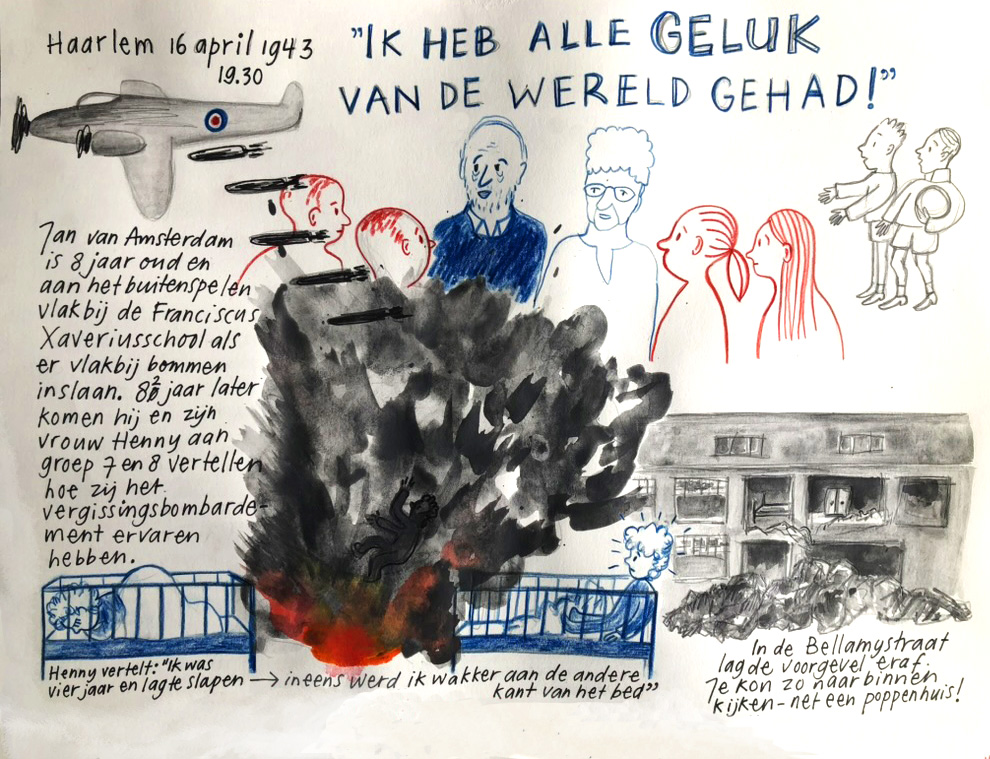 Haarlem 16 april 1943
19.30
"IK HEB ALLE GELUK
VAN DE WERELD GEHAD!"
Jan van Amsterdam
is 8 jaar oud en
aan het buitenspelen
vlakbij de Franciscus
Xaveriusschool als
er vlakbij bommen
inslaan. 82 jaar later
komen hij en zijn
vrouw Henny aan
groep 7 en 8 vertellen
hoe zij het
vergissingsbombarde-
ment ervaren
hebben.
Henny vertelt: "Ik was
vier jaar en lag te slapen → ineens werd ik wakker aan de andere
kant van het bed"
In de Bellamystraat
lag de voorgevel eraf.
Je kon zo naar binnen
kijken - net een poppenhuis!